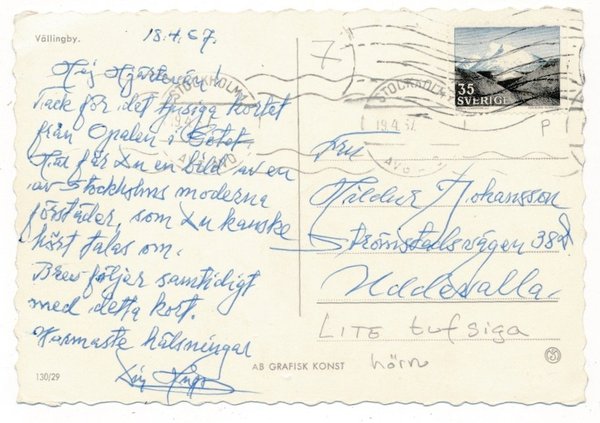 Vällingby.
18.4.67.
7
Hej Hjärtevän!
Tack för det tjusiga kortet
från Opalen i Götet.
Här får Du en bild av en
av Stockholms moderna
förstäder, som Du kanske
hört talas om.
Brev följer samtidigt
med detta kort.
Varmaste hälsningar
Din
130/29
AB GRAFISK KONST
STOCKHOLM
AVG
35
SVERIGE
STOCKHOLM
19.4.67
AVG
P
Fru
Hildur Johansson
Strömstadsvägen 38
Uddevalla.
LITE tufsiga
hörn